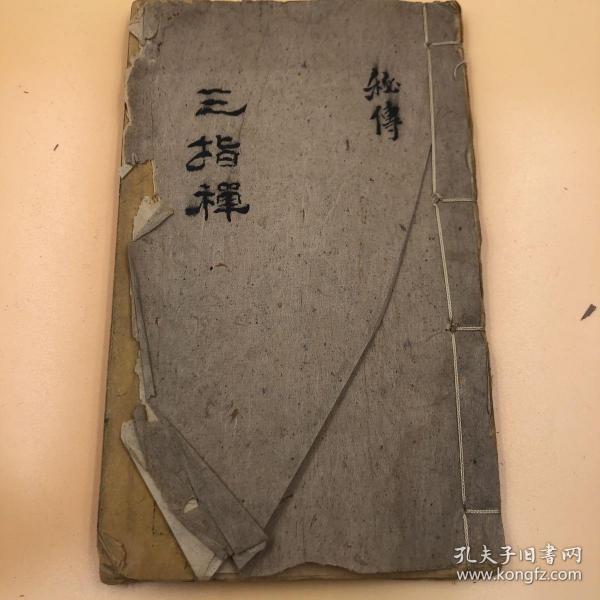 秘傳
三指禪
孔夫子旧书网
www.kongfz.com